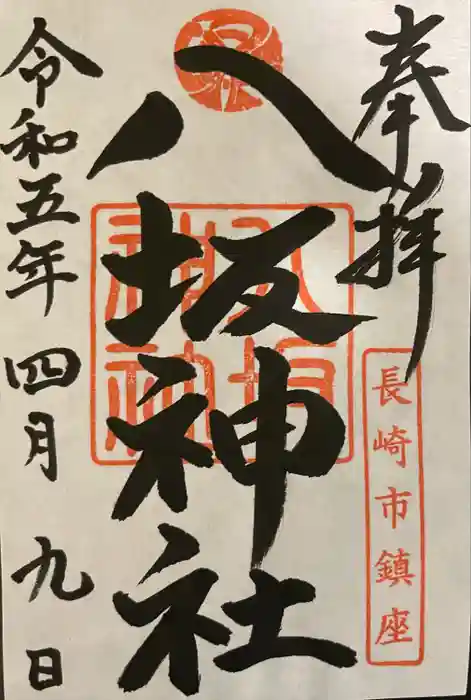 奉拝
長崎市鎮座
八坂神社
八坂神社
令和五年四月九日